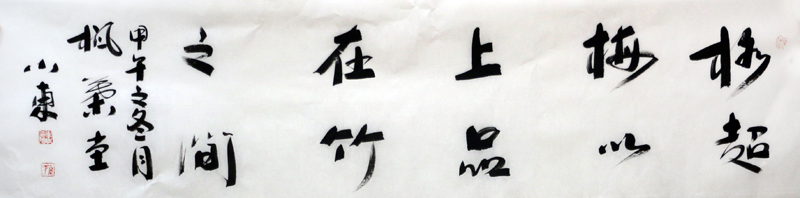 格超
梅以
上品
在竹
之間
甲午之冬月
楓葉堂
小東